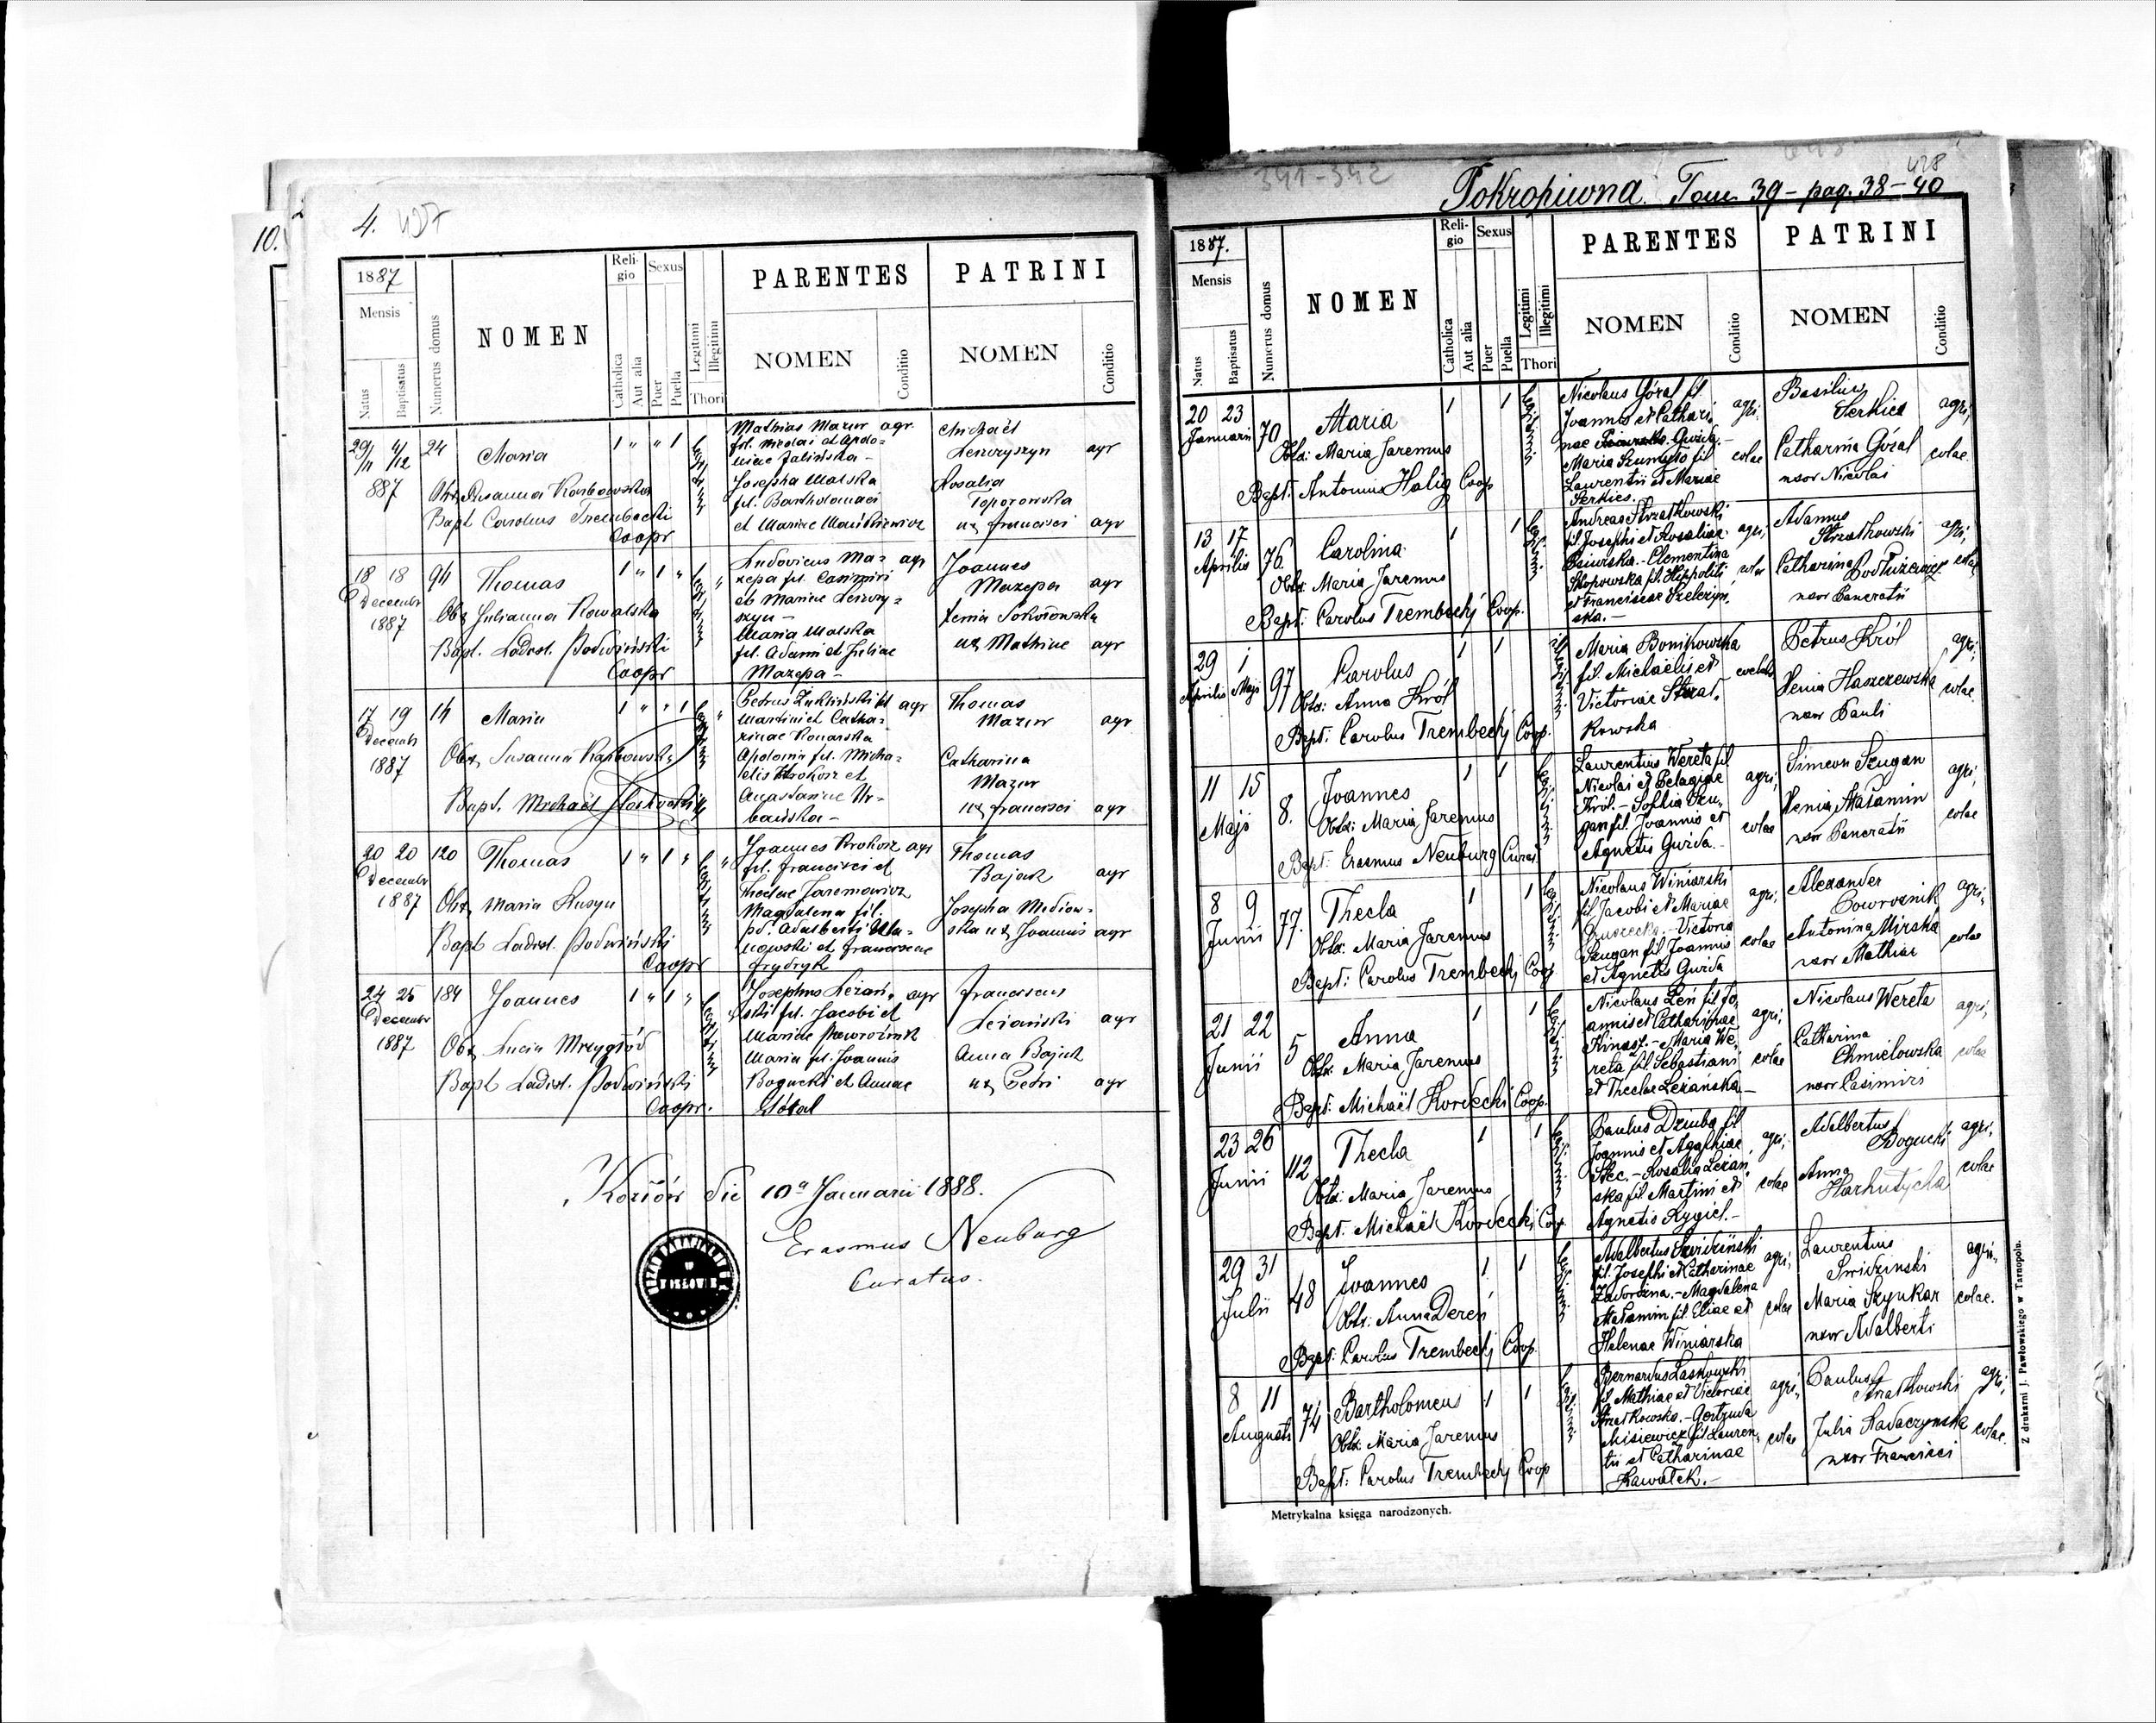 10.
4. 427
1887
Mensis
Natus
Baptisatus
Numerus domus
NOMEN
Religio
Catholica
Aut alia
Sexus
Puer
Puella
Legitimi
Illegitimi
Thori
PARENTES
NOMEN
Conditio
PATRINI
NOMEN
Conditio
29/11 4/12 24 Maria 1 " " 1
887
Obst. Susanna Karbowska
Bapt Carolus Trembecki
Coopr
Mathias Mazur agr
fil. Nicolai et Apolo=
niae Zalińska –
Josepha Malska
fil. Bartholomaei
et Mariae Maćkiewicz
Michaël
Lewczyszyn agr
Rosalia
Toporowska
ux Francisci agr
18 18 94 Thomas 1 " 1 "
Decembr
1887
Obst Julianna Kowalska
Bapt. Ladisl. Podwiński
Coopr
Ludovicus Ma= agr
zepa fil. Casimiri
et Mariae Lewczy=
szyn –
Maria Malska
fil. Adami et Juliae
Mazepa –
Joannes
Mazepa agr
Xenia Sokołowska
ux Mathiae agr
17 19 14 Maria 1 " " 1
Decembr
1887
Obst. Susanna Karbowska
Bapt. Michaël
Petrus fil agr
Martini et Catha=
rinae Konarska
Apolonia fil. Micha=
elis Prokosz et
Anastasiae Ur=
bańska –
Thomas
Mazur agr
Catharina
Mazur
ux Francisci agr
20 20 120 Thomas 1 " 1 "
Decembr
1887
Obst. Maria Rusyn
Bapt Ladisl. Podwiński
Coopr
Joannes Prokosz agr
fil. Francisci et
Theclae Jaremowicz
Magdalena fil.
Adalberti
et Franciscae
Frydryk
Thomas
Bajuk agr
Josepha Mediow=
ska ux Joannis agr
24 25 184 Joannes 1 " 1 "
Decembr
1887
Obst Lucia Mrzygłód
Bapt Ladisl. Podwiński
Coopr.
Josephus Leżań= agr
ski fil. Jacobi et
Mariae Poworoźnik
Maria fil. Joannis
Bogucki et Annae
Franciscus
Leżański agr
Anna Bajuk
ux Petri agr
Kozłów die 10a Januarii 1888.
Erasmus Neuburg
Curatus.
W
KOZŁOWIE
341-342
428
Pokropiwna. Tom. 39 – pag. 38–40
1887.
Mensis
Natus
Baptisatus
Numerus domus
NOMEN
Religio
Catholica
Aut alia
Sexus
Puer
Puella
Legitimi
Illegitimi
Thori
PARENTES
NOMEN
Conditio
PATRINI
NOMEN
Conditio
20 23 70 Maria 1 1
Januarii
Obst: Maria Jaremus
Bapt: Antonius Halig Coop
Nicolaus Góral fil. agri,
Joannis et Cathari,
nae Gwizda.–
Maria Szumyło fil colae
Laurentii et Mariae
Serkies.
Basilius
Serkies agri,
Catharina Góral colae
uxor Nicolai
13 17 76 Carolina 1 1
Aprilis
Obst: Maria Jaremus
Bapt: Carolus Trembecki Coop.
Andreas Strzałkowski
fil. Josephi et Rosaliae agri,
Psiurska.– Clementina
Stopowska fil. Hippoliti colae
et Franciscae Szeleżyn,
ska.–
Adamus
Strzałkowski agri,
Catharina Podłużewicz colae
uxor Pancratii
29 1 97 Carolus 1 1
Aprilis Maji
Obst: Anna Król
Bapt: Carolus Trembecki Coop.
Maria Bomikowska
fil. Michaelis et
Victoriae Strzał,
kowska
Petrus Król agri,
Xenia Haszczewska colae
uxor Pauli
11 15 8. Joannes 1 1
Maji
Obst: Maria Jaremus
Bapt: Erasmus Neuburg Curat.
Laurentius Wereta fil
Nicolai et Pelagiae agri,
Król.– Sophia Szu,
gan fil. Joannis et colae
Agnetis Gwizda.–
Simeon Szugan agri,
Xenia Małamin colae
uxor Pancratii
8 9 77. Thecla 1 1
Junii
Obst: Maria Jaremus
Bapt: Carolus Trembecki Coop
Nicolaus Winiarski
fil. Jacobi et Mariae agri,
Victoria
Szugan fil. Joannis colae
et Agnetis Gwizda
Alexander
Poworoznik agri,
Antonina Mirska colae
uxor Mathiae
21 22 5 Anna 1 1
Junii
Obst: Maria Jaremus
Bapt: Michaël Kordecki Coop.
Nicolaus Leń fil. Jo,
annis et Catharinae agri,
Kinasz.– Maria We,
reta fil. Sebastiani colae
et Theclae Leżańska.–
Nicolaus Wereta agri,
Catharina
Chmielowska colae
uxor Casimiri
23 26 112 Thecla 1 1
Junii
Obst: Maria Jaremus
Bapt: Michaël Kordecki Coop.
Paulus Dziuba fil
Joannis et Agathiae agri,
Stec.– Rosalia Leżań,
ska fil. Martini et colae
Agnetis Kygiel.–
Adalbertus
Bogucki agri,
Anna
Harhutycha colae
29 31 48 Joannes 1 1
Julii
Obst: Anna Dereń
Bapt: Carolus Trembecki Coop.
Adalbertus Świdziński
fil. Josephi et Catharinae agri,
Zadorożna.– Magdalena
Małamin fil. Eliae et colae
Helenae Winiarska
Laurentius
Świdzinski agri,
Maria Szynkar colae.
uxor Adalberti
8 11 74 Bartholomeus 1 1
Augusti
Obst: Maria Jaremus
Bapt: Carolus Trembecki Coop
Bernardus Laskowski
fil. Mathiae et Victoriae agri,
Strzałkowska.– Gertruda
Misiewicz fil. Lauren, colae
tii et Catharinae
Kawałek.–
Paulus
Strzałkowski agri,
Julia Kadaczynska colae.
uxor Francisci
Metrykalna księga narodzonych.
Z drukarni J. Pawłowskiego w Tarnopolu.